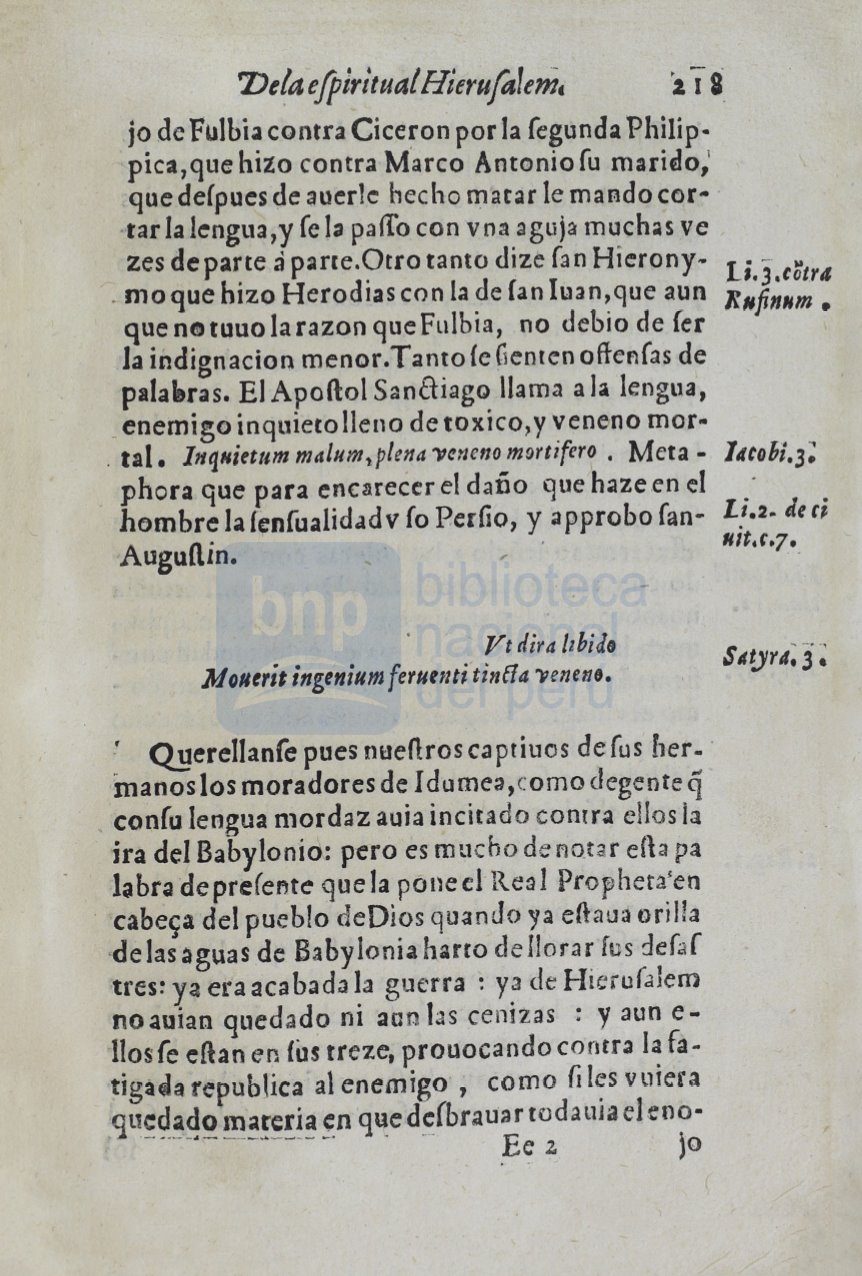 De la eſpiritual Hieruſalem. 218
jo de Fulbia contra Ciceron por la ſegunda Philip-
pica, que hizo contra Marco Antonio ſu marido,
que deſpues de auerle hecho matar le mando cor-
tar la lengua, y ſe la paſſo con vna aguja muchas ve
zes de parte á parte. Otro tanto dize ſan Hierony-
mo que hizo Herodias con la de ſan Iuan, que aun
que no tuuo la razon que Fulbia, no debio de ſer
la indignacion menor. Tanto ſe ſienten offenſas de
palabras. El Apoſtol Sanctiago llama a la lengua,
enemigo inquieto lleno de toxico, y veneno mor-
tal. Inquietum malum, plena veneno mortifero. Meta-
phora que para encarecer el daño que haze en el
hombre la ſenſualidad v ſo Perſio, y approbo ſan-
Auguſtin.
Li. 3. cõtra
Rufinum.
Iacobi. 3.
Li. 2. de ci
uit. c. 7.
Vt dira libido
Mouerit ingenium feruenti tincta veneno.
Satyra. 3.
Querellanſe pues nueſtros captiuos de ſus her-
manos los moradores de Idumea, como de gente q̃
con ſu lengua mordaz auia incitado contra ellos la
ira del Babylonio: pero es mucho de notar eſta pa
labra de preſente que la pone el Real Propheta en
cabeça del pueblo de Dios quando ya eſtaua orilla
de las aguas de Babylonia harto de llorar ſus deſaſ
tres: ya era acabada la guerra : ya de Hieruſalem
no auian quedado ni aun las cenizas : y aun e-
llos ſe eſtan en ſus treze, prouocando contra la fa-
tigada republica al enemigo , como ſi les vuiera
quedado materia en que deſbrauar todauia el eno-
Ee 2 jo
bnp biblioteca
nacional
del perú